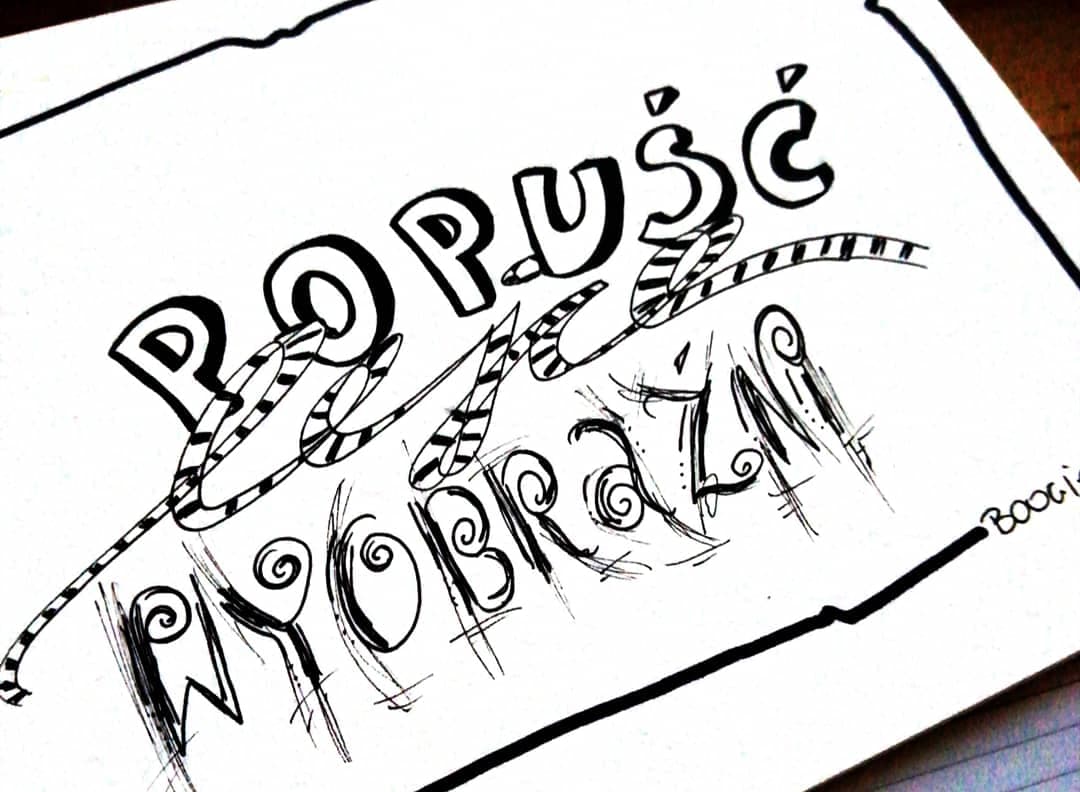 POPUŚĆ
lejce
WYOBRaŹNI
BOOGi